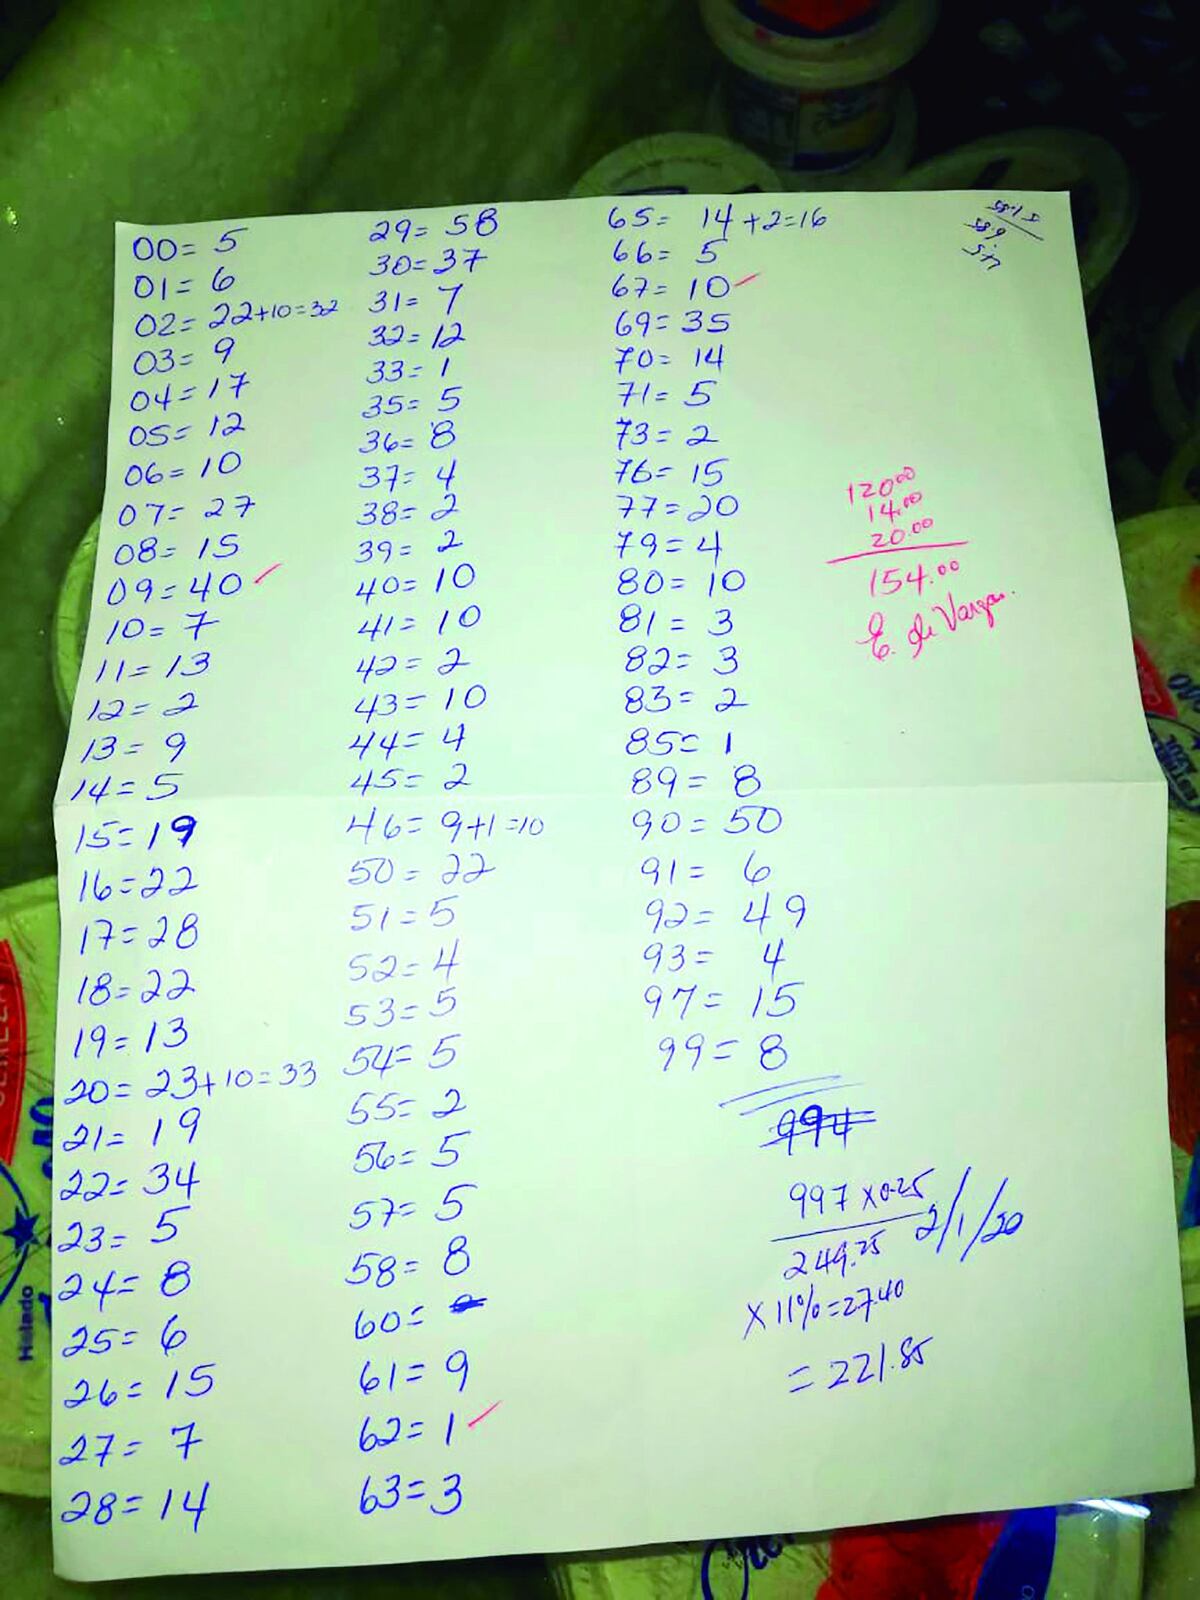 00= 5
01= 6
02= 22+10=32
03= 9
04= 17
05= 12
06= 10
07= 27
08= 15
09= 40
10= 7
11= 13
12= 2
13= 9
14= 5
15= 19
16=22
17=28
18=22
19=13
20= 23+10=33
21= 19
22= 34
23= 5
24= 8
25= 6
26= 15
27= 7
28= 14
29= 58
30= 37
31= 7
32= 12
33= 1
35= 5
36= 8
37= 4
38= 2
39= 2
40= 10
41= 10
42= 2
43= 10
44= 4
45= 2
46= 9+1=10
50= 22
51= 5
52= 4
53= 5
54= 5
55= 2
56= 5
57= 5
58= 8
60=
61= 9
62= 1
63= 3
65= 14+2=16
66= 5
67= 10
69= 35
70= 14
71= 5
73= 2
76= 15
77= 20
79= 4
80= 10
81= 3
82= 3
83= 2
85= 1
89= 8
90= 50
91= 6
92= 49
93= 4
97= 15
99= 8
994
997 x0.25
249.25
2/1/20
x 11%=27.40
= 221.85
120.00
14.00
20.00
154.00
E. de Vargas.
Helado